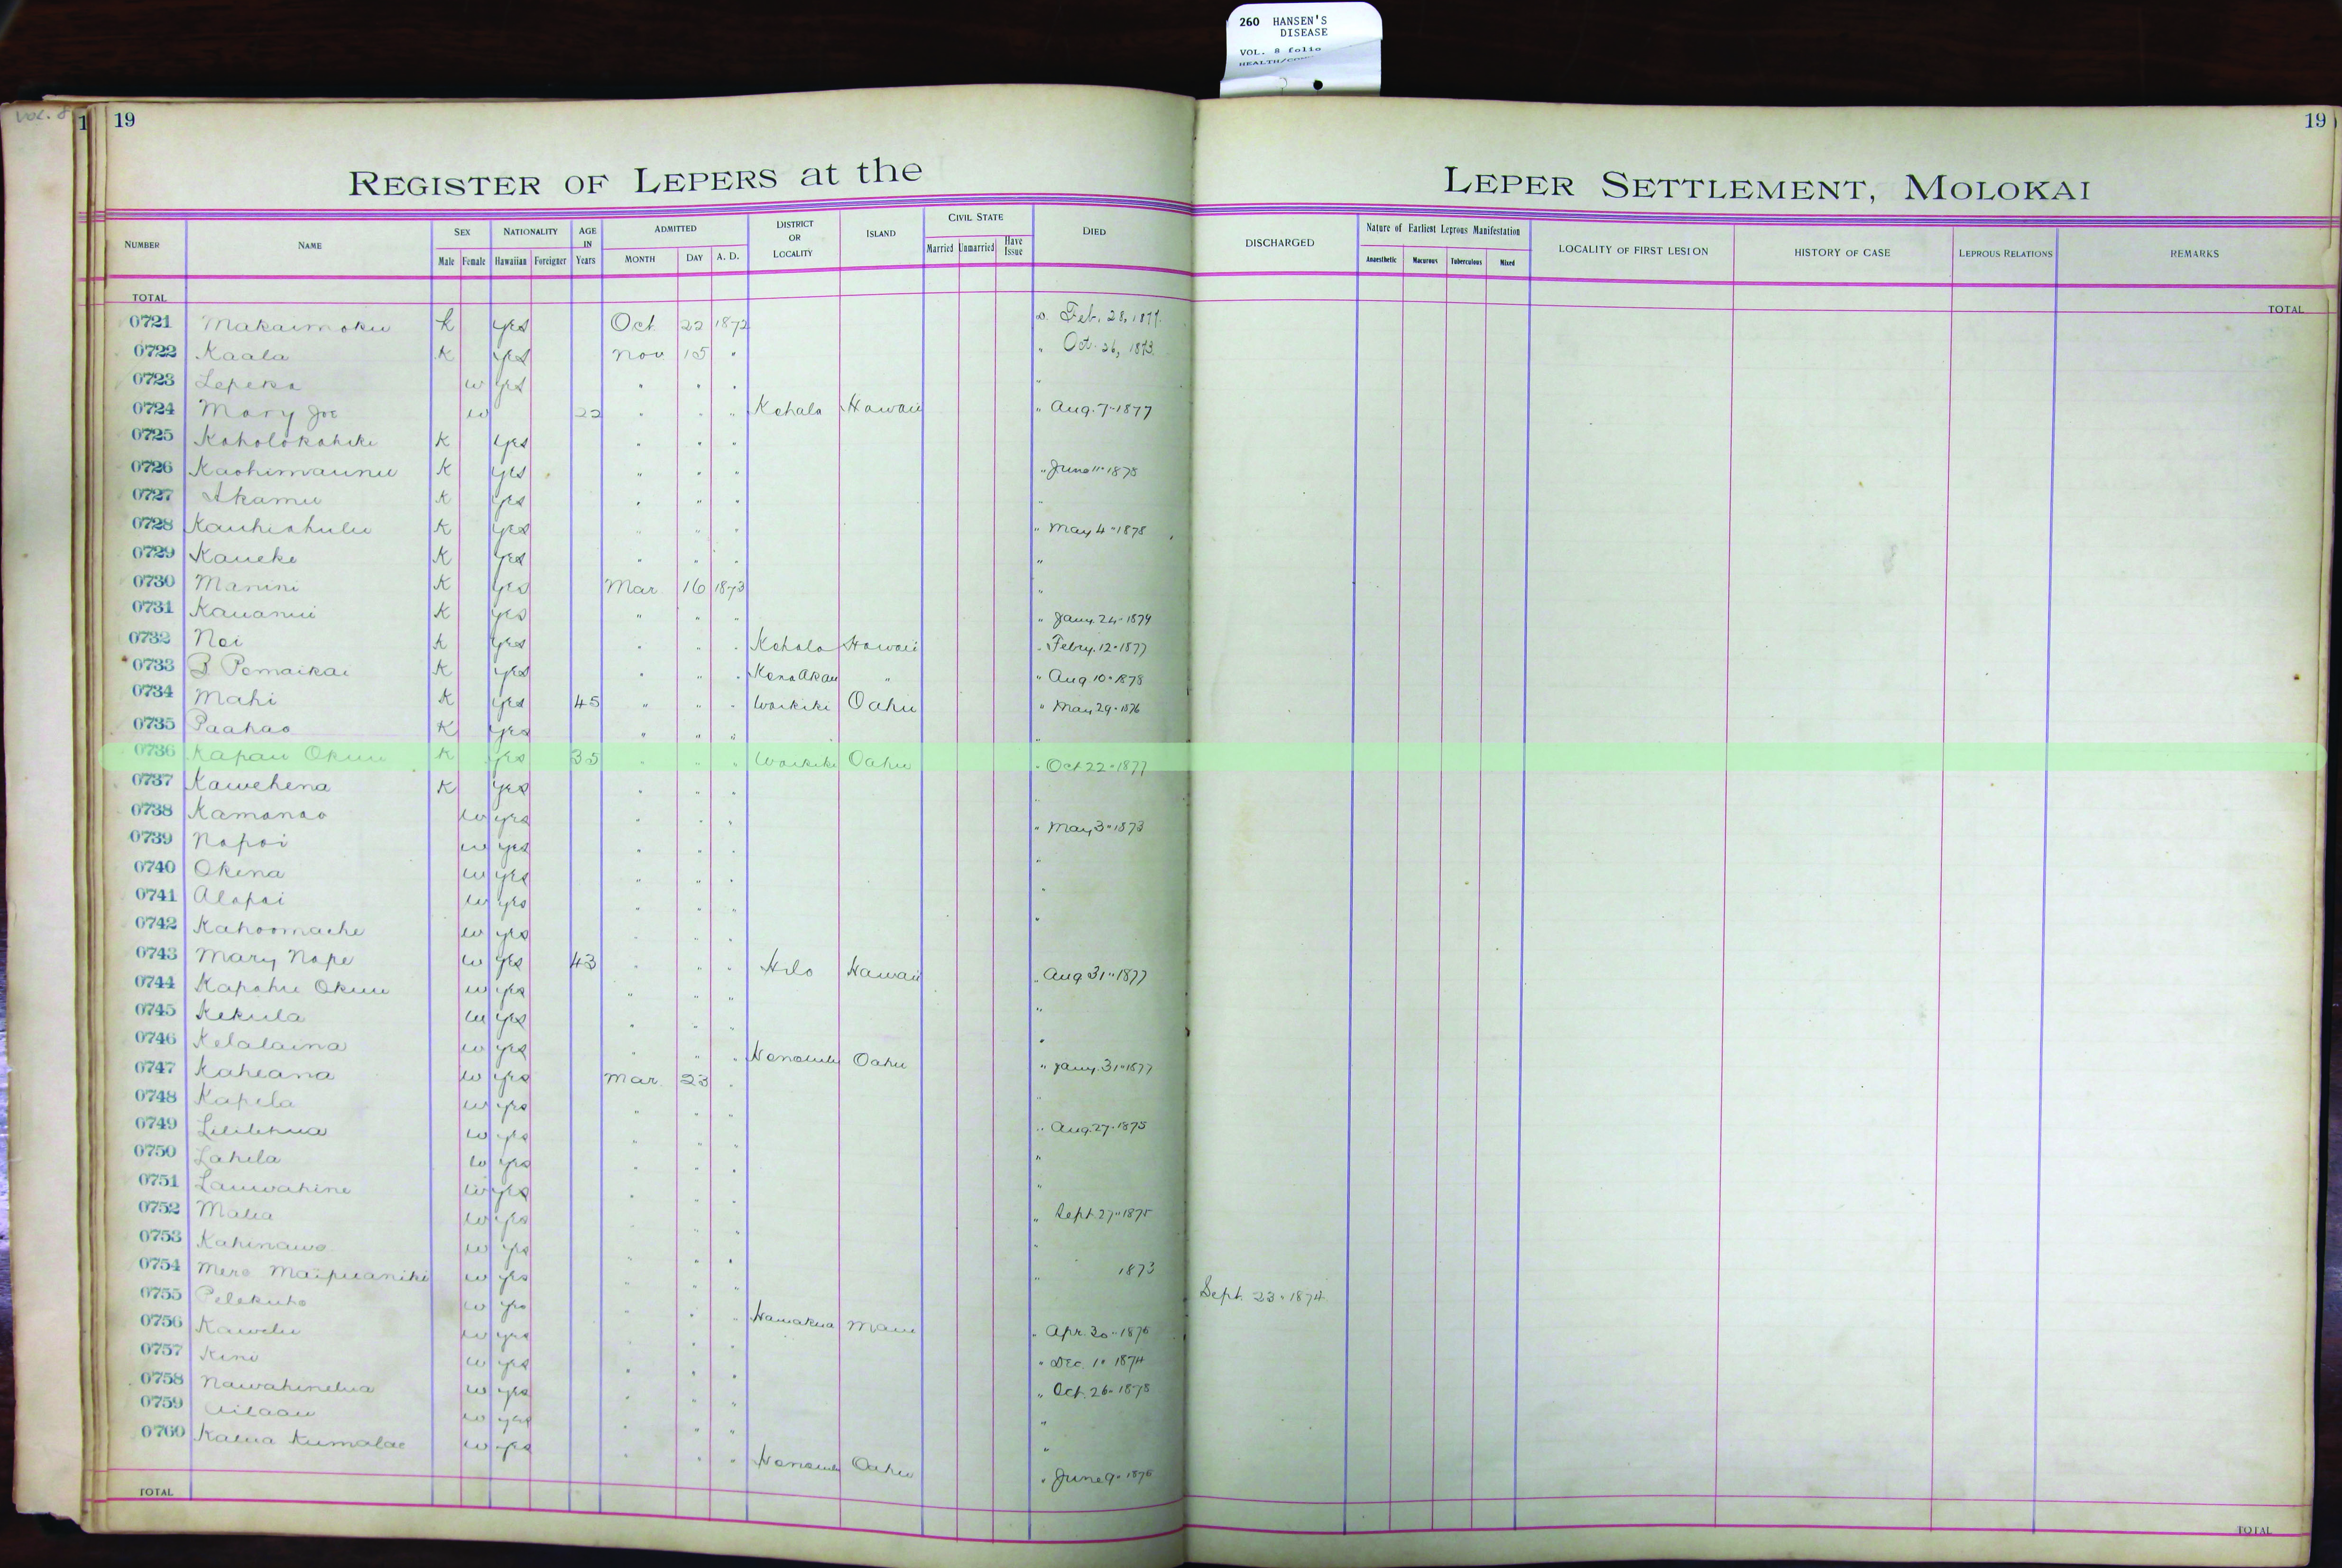 260 HANSEN'S
DISEASE
VOL. 8 folio
Vol. 8
1 19 19
REGISTER OF LEPERS at the LEPER SETTLEMENT, MOLOKAI
NUMBER NAME SEX Male Female NATIONALITY Hawaiian Foreigner AGE IN Years ADMITTED MONTH DAY A. D. DISTRICT OR LOCALITY ISLAND CIVIL STATE Married Unmarried Have Issue DIED DISCHARGED Nature of Earliest Leprous Manifestation Anaesthetic Macurous Tuberculous Mixed LOCALITY OF FIRST LESION HISTORY OF CASE LEPROUS RELATIONS REMARKS
TOTAL TOTAL
0721 Makaimoku K yes Oct 22 1872 Feb. 28, 1877
0722 Kaala K yes Nov 15 " " Oct. 26, 1873
0723 Lepeka w yes " " " "
0724 Mary Joe w 22 " " " Kohala Hawaii " Aug. 7-1877
0725 Koholokahiki K yes " " "
0726 Kaohimaunu K yes " " " " June 11-1878
0727 Akamu K yes " " " "
0728 Kauhiahulu K yes " " " " May 4-1878
0729 Kaueke K yes " " " "
0730 Manini K yes Mar 16 1873 "
0731 Kauanui K yes " " " " Jany. 24-1879
0732 Noi K yes " " " Kohala Hawaii " Febry. 12-1877
0733 B Pomaikai K yes " " " Kona Akau " " Aug 10-1878
0734 Mahi K yes 45 " " " Waikiki Oahu " May 29-1876
0735 Paahao K yes " " " "
0736 Kapau Okuu K yes 35 " " " Waikiki Oahu " Oct 22-1877
0737 Kawehena K yes " " " "
0738 Kamanao w yes " " " " May 3-1873
0739 Napoi w yes " " " "
0740 Okina w yes " " " "
0741 Alapai w yes " " " "
0742 Kahoomache w yes " " "
0743 Mary Nape w yes 43 " " " Hilo Hawaii " Aug 31-1877
0744 Kapahu Okuu w yes " " " "
0745 Kekula w yes " " " "
0746 Kelalaina w yes " " " Honolulu Oahu " Jany. 31-1877
0747 Kaheana w yes Mar. 23 " "
0748 Kapela w yes " " "
0749 Lililehua w yes " " " " Aug. 27-1875
0750 Lahela w yes " " " "
0751 Lauwahine w yes " " " "
0752 Malia w yes " " " " Sept 27-1875
0753 Kahinawe w yes " " " "
0754 Mere Maipuaniki w yes " " " " 1873
0755 Pelekuho w yes " " " Sept. 23-1874
0756 Kawelu w yes " " " Hamakua Maui " Apr. 30-1876
0757 Kini w yes " " " " Dec. 1-1874
0758 Nawahinelua w yes " " " " Oct. 26-1878
0759 Ailaau w yes " " " "
0760 Kalua Kumalae w yes " " " Honolulu Oahu " June 9-1876
TOTAL TOTAL